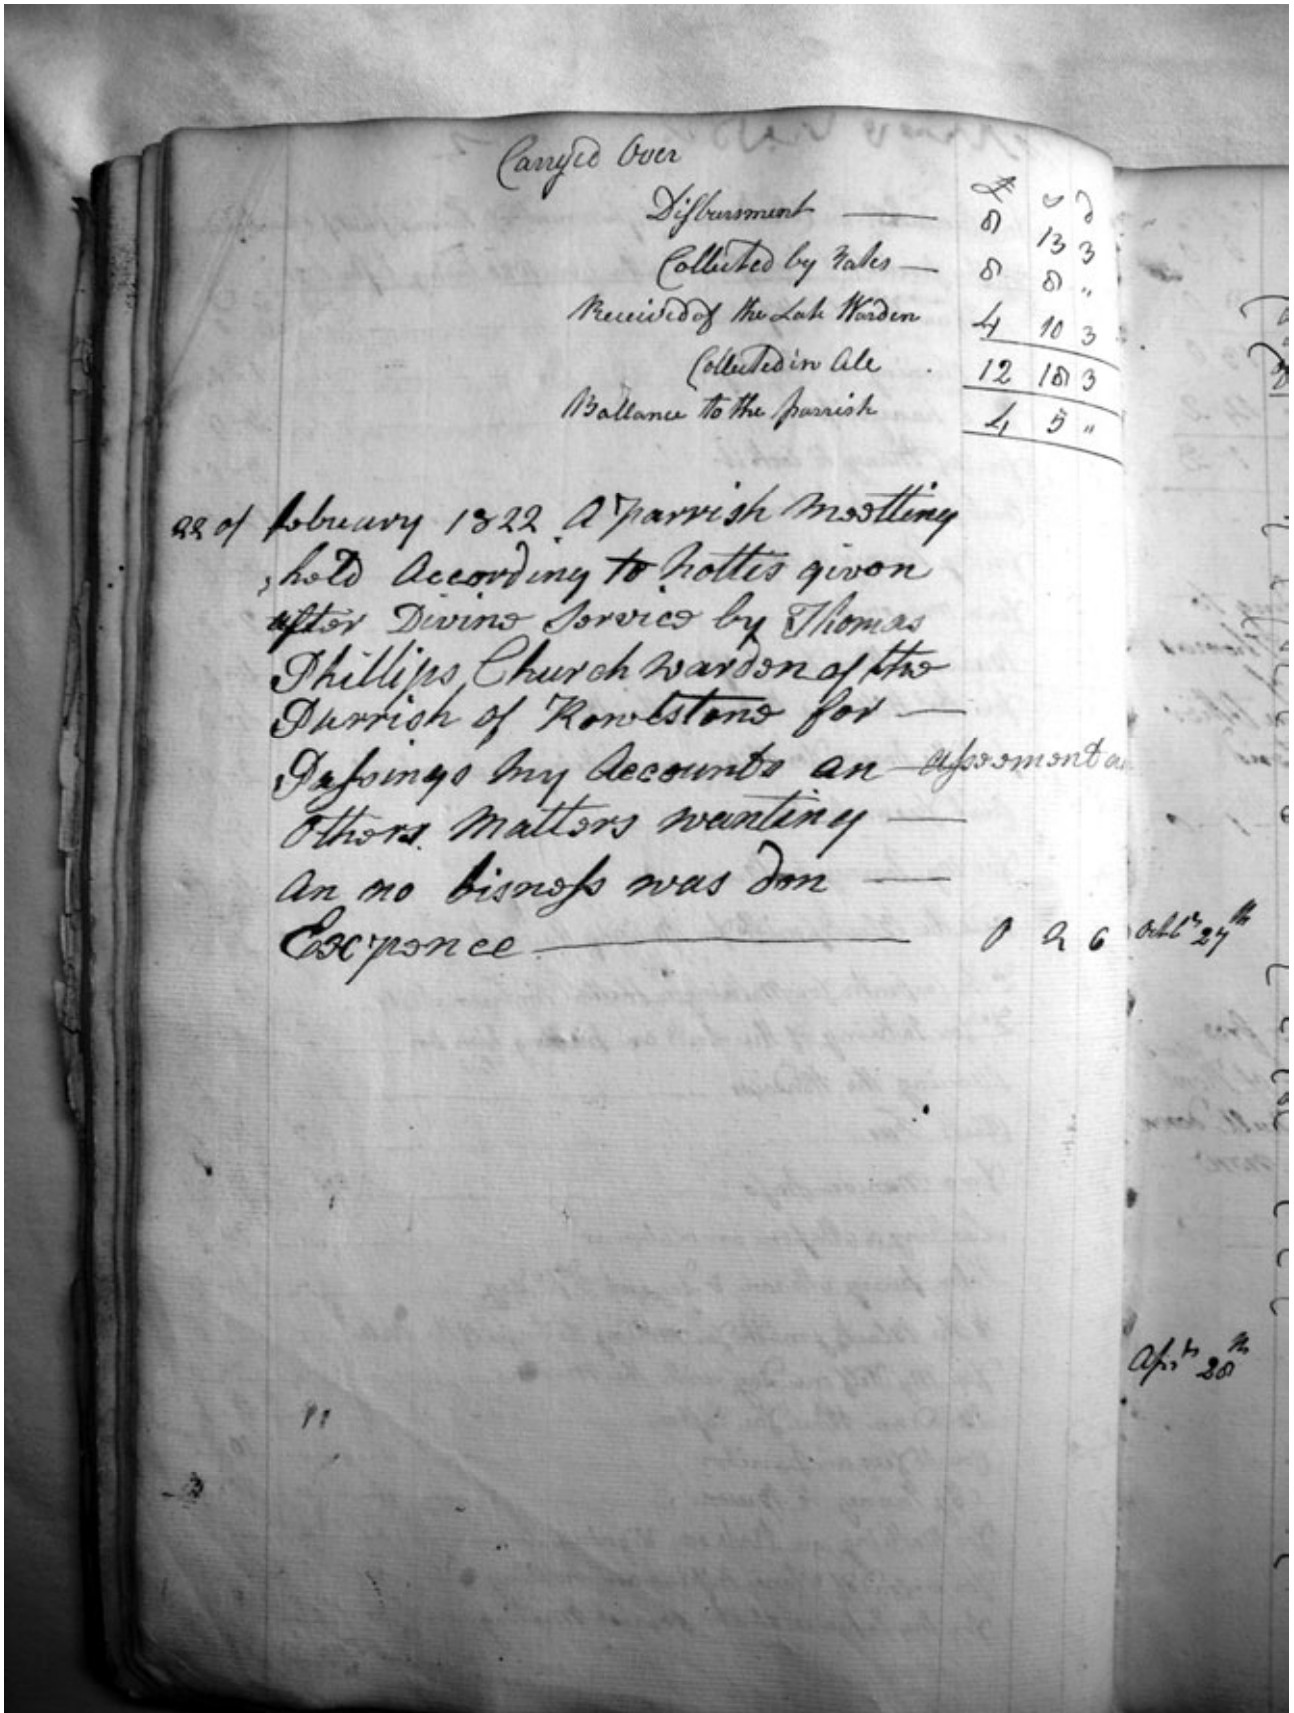 Carryed Over
£ s d
Disbursment — 8 13 3
Collected by Rates — 8 8 "
Received of the Late Warden 4 10 3
Collected in Ale 12 18 3
Ballance to the parrish 4 5 "
22 of febuary 1822 A parrish Meetting
held According to nottis given
after Divine Service by Thomas
Phillips Church warden of the
Parrish of Rowlstone for —
Passings my Accounts an assesment an
Others Matters wanting —
an no bisness was don —
Expence — 0 2 6
Octbr 27th
28th